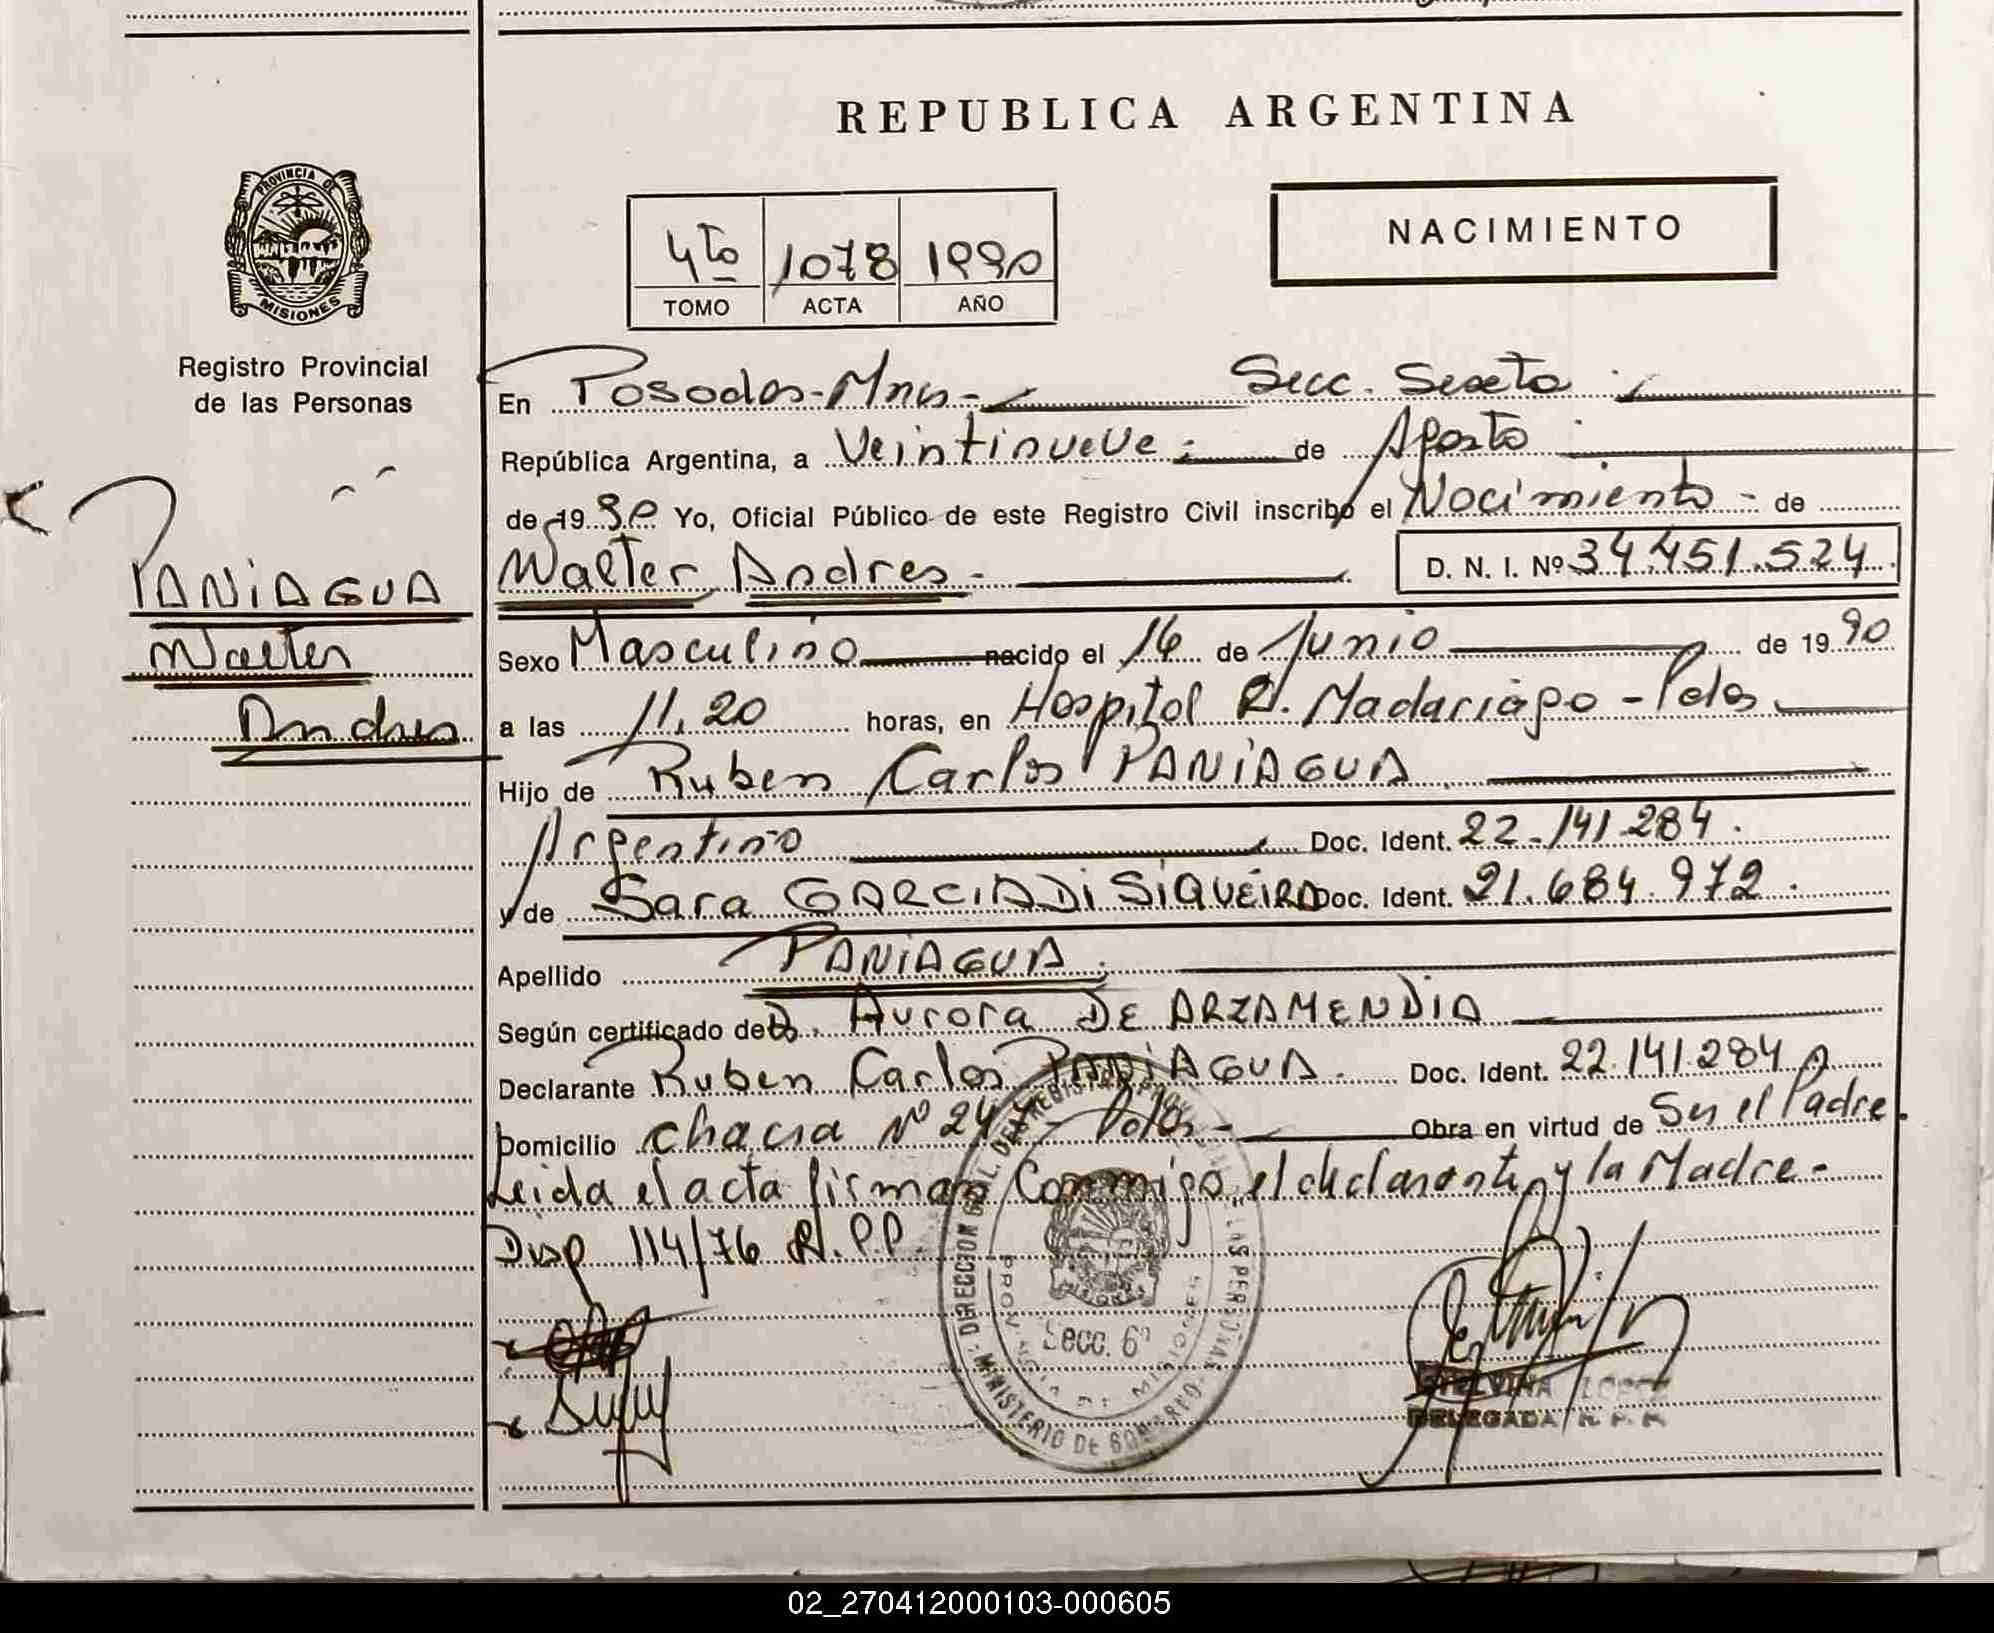 REPUBLICA ARGENTINA
PROVINCIA DE
MISIONES
Registro Provincial
de las Personas
4to 1078 1990
TOMO ACTA AÑO
NACIMIENTO
PANIAGUA
Walter
Andres
En Posadas - Mnes - Secc. Sexta
República Argentina, a Veintinueve de Agosto
de 1990 Yo, Oficial Público de este Registro Civil inscribo el Nacimiento - de
Walter Andres - D. N. I. Nº 34.451.524
Sexo Masculino nacido el 16 de Junio de 1990
a las 11,20 horas, en Hospital R. Madariaga - Pdas
Hijo de Ruben Carlos PANIAGUA
Argentino Doc. Ident. 22.141.284.
y de Sara GARCIA DI SIQUEIRA Doc. Ident. 21.684.972.
Apellido PANIAGUA.
Según certificado de D. Aurora DE ARZAMENDIA
Declarante Ruben Carlos PANIAGUA. Doc. Ident. 22.141.284
Domicilio chacra Nº 24 - Pdas - Obra en virtud de Ser el Padre.
Leida el acta firman Conmigo, el declarante y la Madre -
Disp 114/76 R.P.P.
DIRECCION GRAL. DEL REGISTRO PROVINCIAL DE LAS PERSONAS
MINISTERIO DE GOBIERNO
PROVINCIA DE MISIONES
Secc. 6ª
ETELVINA LOPEZ
DELEGADA R. P. P.
02_270412000103-000605